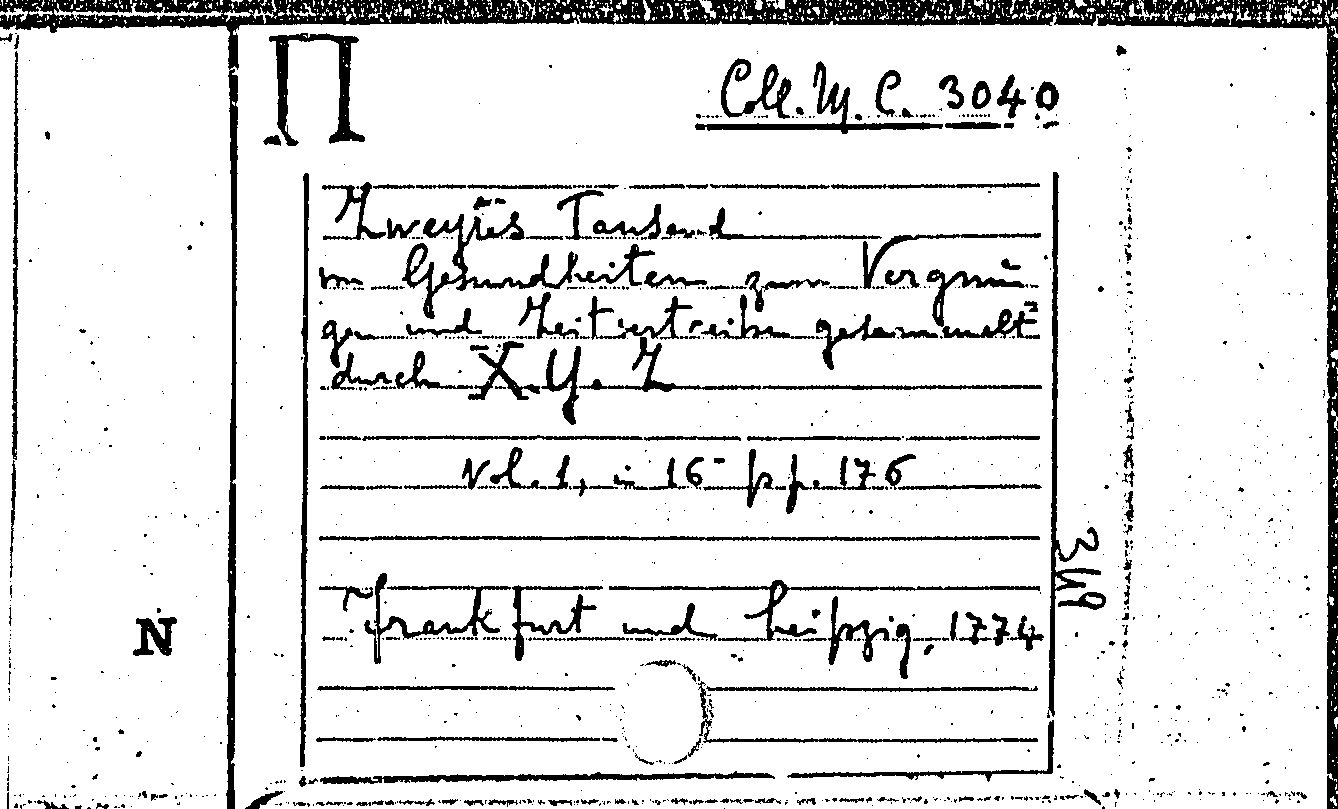 Π
Coll. M. C. 3040
Zweytes Tausend
von Gesundheiten zum Vergnü
gen und Zeitvertreibe gesammelt
durch X. Y. Z
Vol. 1, in 16- pp. 176
Frankfurt und Leipzig, 1774
349
N